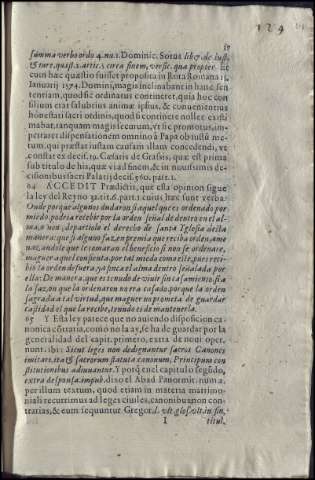 17
129
summa verbo ordo 4. nu. 1. Dominic. Sotus lib. 7. de iust.
& iure, quæst. 2. artic. 5. circa finem, versic. qua propter. Et
cum hæc quæstio fuisset proposita in Rota Romana 15.
Ianuarij 1574. Domini, magis inclinabant in hanc sen
tentiam, quod sic ordinatus contineret, quia hoc con
silium erat salubrius animæ ipsius, & conuenientius
honestati sacri ordinis, quod si continere nollet existi
mabat, tanquam magis securum, vt sic promotus, im-
petraret dispensationem omnino à Papa obtusse me-
tum, qui præstat iustam causam illam concedendi, ve
constat ex decis. 19. Cæsaris de Grassis, quæ est prima
sub titulo de his, quæ vi ad finem, & in nouissimis de
cisionibus sacri Palatij decis. 560. part. 1.
64 ACCEDIT Prædictis, que esta opinion sigue
la ley del Reyno 32. tit. 6. part. 1. cuius hæc sunt verba:
Onde porque algunos dudaron si aquel que es ordenado por
miedo podia recebir por la orden señal de dentro en el al-
ma, o non, departiolo el derecho de santa Iglesia desta
manera: que si alguno faz en premia que reciba orden, ame
naz andole que le tomaran el beneficio si non se ordenare,
maguer a quel consienta por tal miedo como este, pues reci-
bio la orden defuera, ya finca el alma dentro señalada por
ella: De manera, que es tenudo de viuir sin casamiento, si a
la saz on que la ordenaron no era casado, porque la orden
sagrada a tal virtud, que maguer no prometa de guardar
castidad el que la recibe, tenudo es de mantenerla.
65 Y Esta ley parece que no auiendo disposicion ca-
nonica contraria, como no la ay, se ha de guardar por la
generalidad del capit. primero, extra de noui oper.
nunt. ibi: Sicut leges non dedignantur sacros Canones
imitari, ita & sacrorum statuta canonum, Principum con
stitutionibus adiuuantur. Y porq̃ en el capitulo segũdo,
extra de sponsa. impub. dixo el Abad Panormit. num. 2.
per illum textum, quod etiam in materia matrimo-
niali recurrimus ad leges ciuiles, canonibus non con-
trarias, & eum sequuntur Gregor. d. vdt. glos. vlt. in fin,
I
titul.